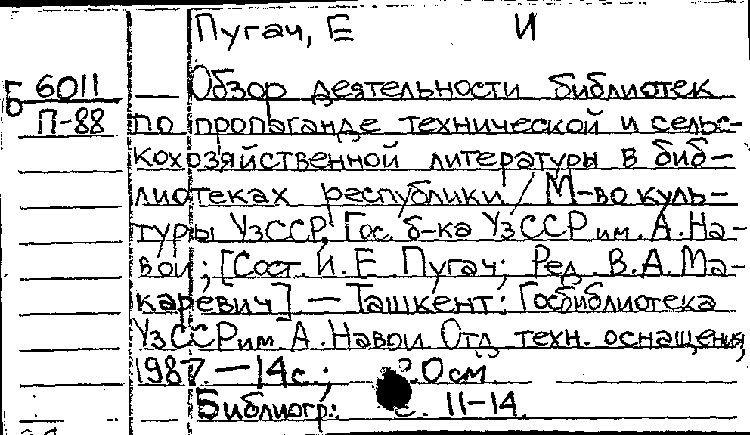 Пугач, Е И
Б 6011 — Обзор деятельности библиотек
П-88 по пропаганде технической и сельс-
кохозяйственной литературы в биб-
лиотеках республики / М-во куль-
туры УзССР, Гос. б-ка УзССР им. А. На-
вои; [Сост. И. Е. Пугач; Ред. В. А. Ма-
каревич] — Ташкент: Госбиблиотека
УзССР им. А. Навои Отд техн. оснащения,
1987. — 14 с.; 20 см
Библиогр.: с. 11-14.